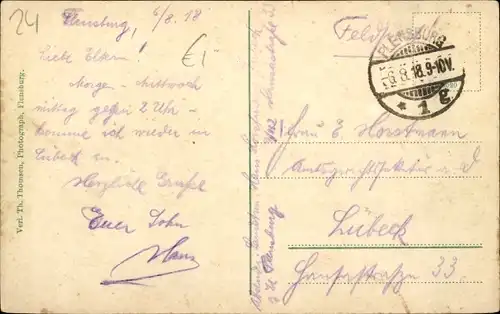 24
Flensburg, 6/8. 18
€1
Liebe Eltern!
Morgen Mittwoch
mittag gegen 2 Uhr
komme ich wieder in
Lübeck an.
Herzliche Grüße
Euer Sohn
Hans
Verl. Th. Thomsen, Photograph, Flensburg.
z. Zt. Flensburg
FLENSBURG
6.8.18.9-10V.
* 1 g.
Frau E. Horstmann
Lübeck
Hansastraße 33.